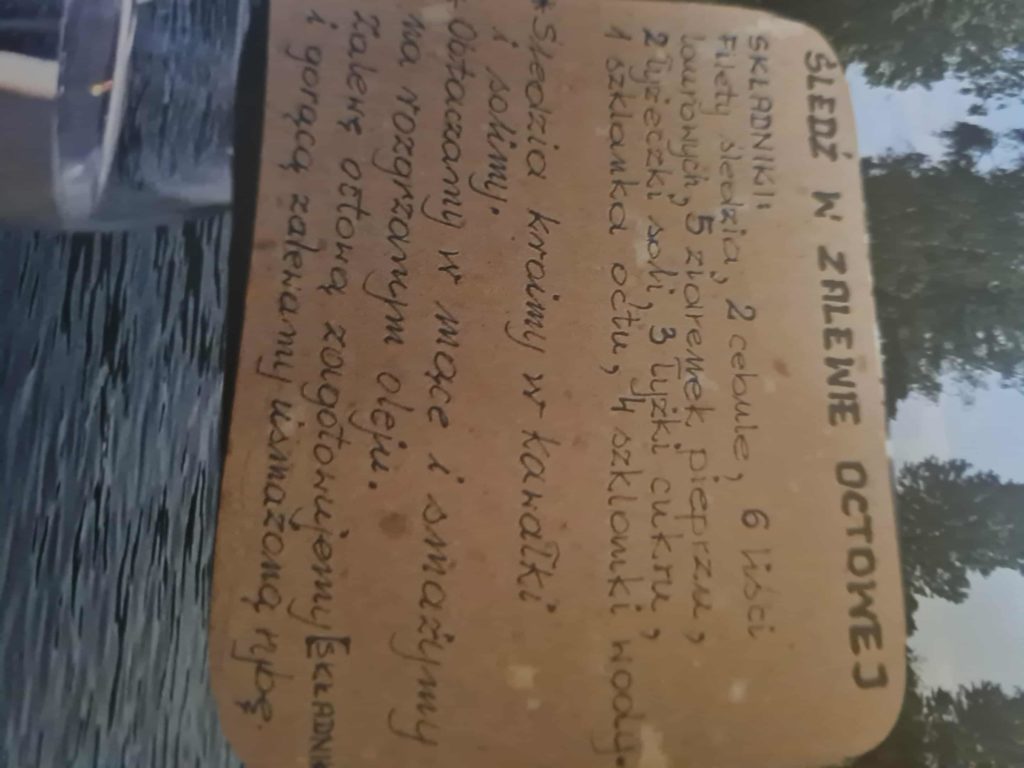 ŚLEDŹ W ZALEWIE OCTOWEJ
SKŁADNIKI:
Filety śledzia, 2 cebule, 6 liści
laurowych, 5 ziarenek pieprzu,
2 łyżeczki soli, 3 łyżki cukru,
1 szklanka octu, 4 szklanki wody.
* Śledzia kroimy w kawałki
i solimy.
* Obtaczamy w mące i smażymy
na rozgrzanym oleju.
Zalewę octową zagotowujemy [SKŁADNI
i gorącą zalewamy usmażoną rybę.